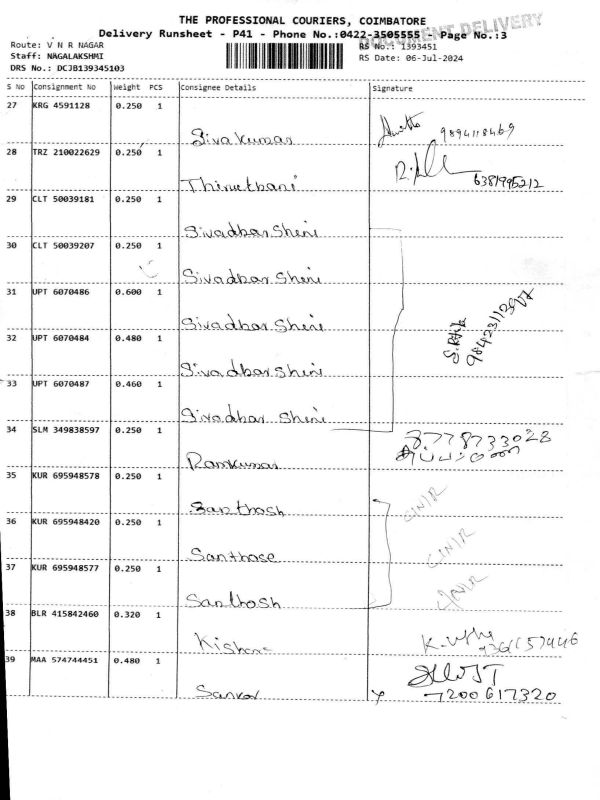 THE PROFESSIONAL COURIERS, COIMBATORE
DOCUMENT DELIVERY
Delivery Runsheet - P41 - Phone No.:0422-3505555 Page No.:3
Route: V N R NAGAR RS No.: 1393451
Staff: NAGALAKSHMI RS Date: 06-Jul-2024
DRS No.: DCJB139345103
S No Consignment No Weight PCS Consignee Details Signature
27 KRG 4591128 0.250 1
Sivakumar 9894118469
28 TRZ 210022629 0.250 1
6381995212
29 CLT 50039181 0.250 1
Sivadharsheni
30 CLT 50039207 0.250 1
Sivadharsheni
31 UPT 6070486 0.600 1
Sivadharsheni
32 UPT 6070484 0.480 1
Sivadharsheni
33 UPT 6070487 0.460 1
Sivadharsheni
34 SLM 349838597 0.250 1
8778733028
Ramkumar
35 KUR 695948578 0.250 1
Santhosh
36 KUR 695948420 0.250 1
Santhose
37 KUR 695948577 0.250 1
Santhosh
38 BLR 415842460 0.320 1
Kishore
39 MAA 574744451 0.480 1
Sankar 7200617320